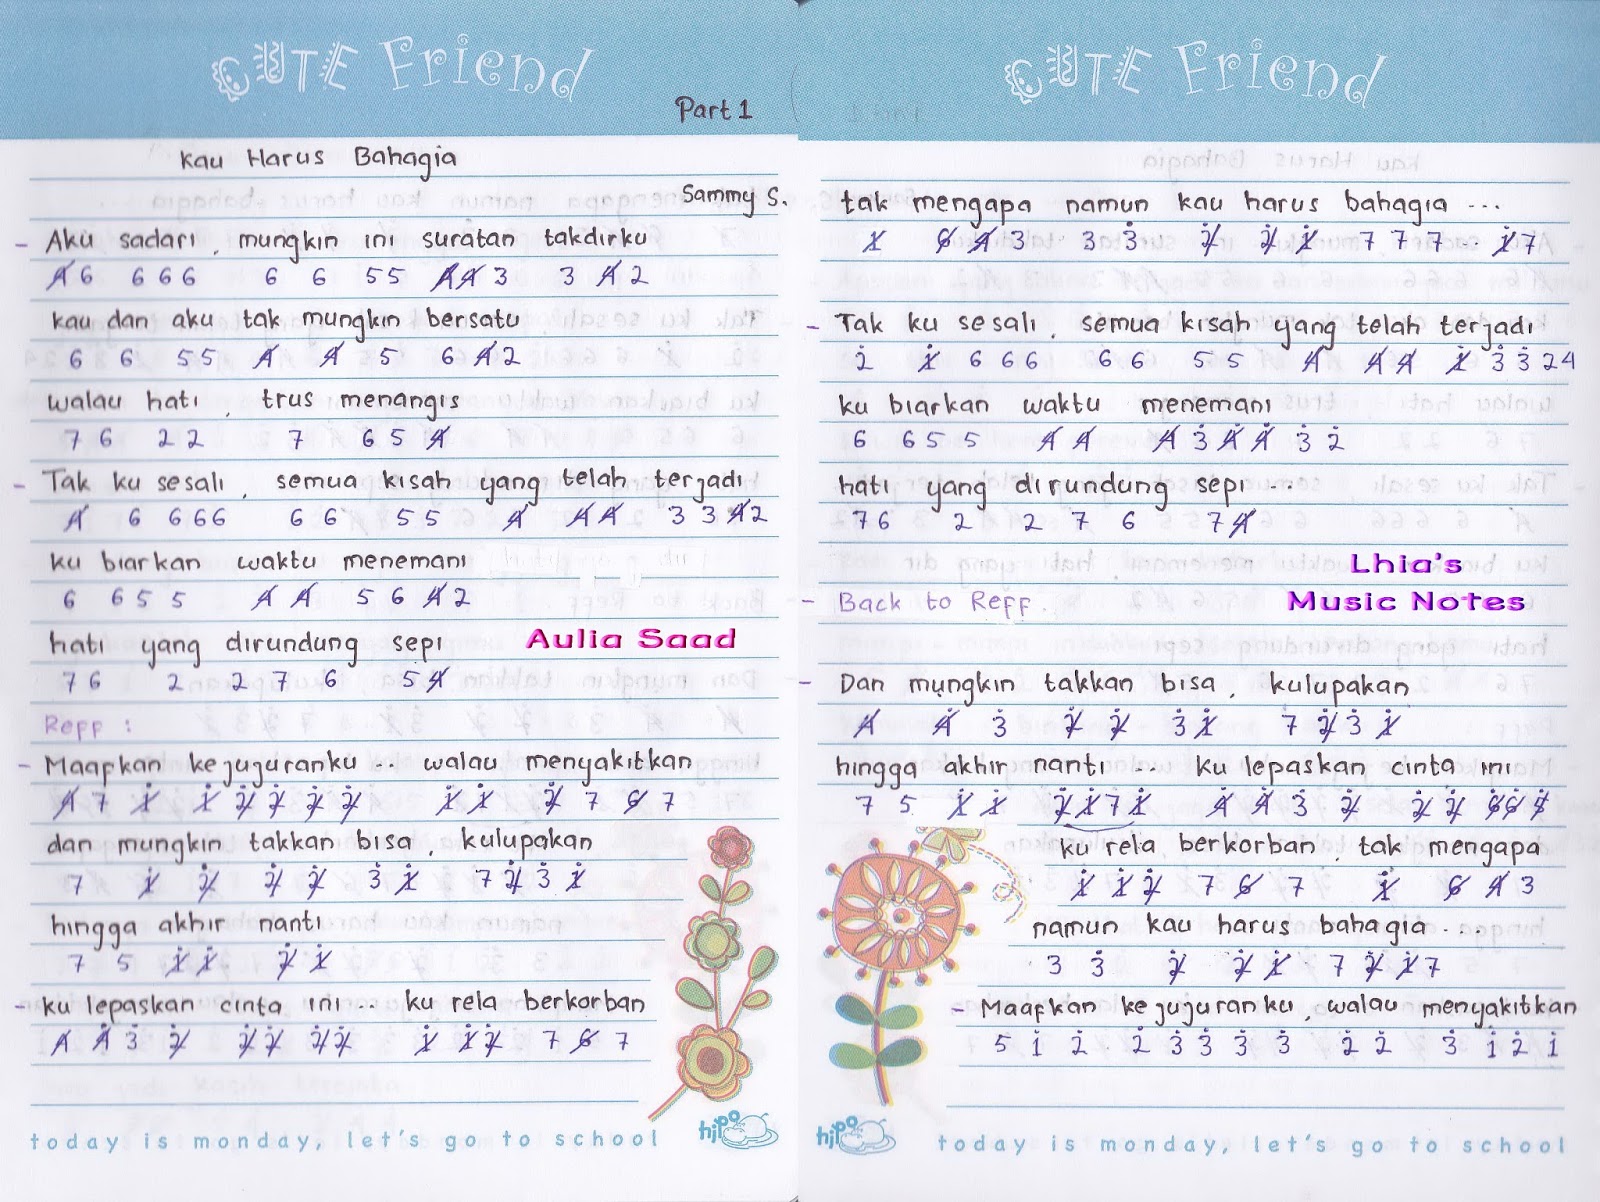 CUTE Friend
Part 1
Kau Harus Bahagia
Sammy S.
- Aku sadari, mungkin ini suratan takdirku
4 6 6 6 6 6 6 5 5 4 4 3 3 4 2
kau dan aku tak mungkin bersatu
6 6 5 5 4 4 5 6 4 2
walau hati, trus menangis
7 6 2 2 7 6 5 4
- Tak ku sesali, semua kisah yang telah terjadi
4 6 6 6 6 6 6 5 5 4 4 4 3 3 4 2
ku biarkan waktu menemani
6 6 5 5 4 4 5 6 4 2
hati yang dirundung sepi
Aulia Saad
7 6 2 2 7 6 5 4
Reff :
- Maafkan kejujuranku ... walau menyakitkan
4 7 1 1 2 2 2 2 1 1 2 7 6 7
dan mungkin takkan bisa, kulupakan
7 1 2 2 2 3 1 7 2 3 1
hingga akhir nanti
7 5 1 1 2 1
- ku lepaskan cinta ini ... ku rela berkorban
4 4 3 2 2 2 2 2 1 1 2 7 6 7
today is monday, let's go to school
hipo
CUTE Friend
tak mengapa namun kau harus bahagia ...
1 6 4 3 3 3 2 2 1 7 7 7 ... 1 7
- Tak ku sesali, semua kisah yang telah terjadi
2 1 6 6 6 6 6 5 5 4 4 4 1 3 3 2 4
ku biarkan waktu menemani
6 6 5 5 4 4 4 3 4 4 3 2
hati yang dirundung sepi ...
7 6 2 2 7 6 7 4
Lhia's
Music Notes
- Back to Reff.
- Dan mungkin takkan bisa, kulupakan
4 4 3 2 2 3 1 7 2 3 1
hingga akhir nanti ... ku lepaskan cinta ini
7 5 1 1 2 1 7 1 4 4 3 2 2 2 6 6 5
ku rela berkorban, tak mengapa
1 1 2 7 6 7 1 6 4 3
namun kau harus bahagia ...
3 3 2 2 1 7 2 1 7
- Maafkan kejujuranku, walau menyakitkan
5 1 2 2 3 3 3 3 2 2 3 1 2 1
hipo
today is monday, let's go to school